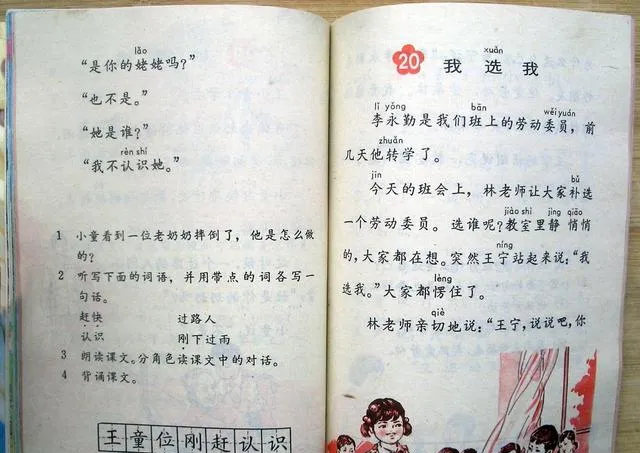 lǎo
“是你的姥姥吗？”
“也不是。”
“她是谁？”
rèn shi
“我不认识她。”
1 小童看到一位老奶奶摔倒了，他是怎么做
的？
2 听写下面的词语，并用带点的词各写一
句话。
赶快 过路人
认识 刚下过雨
3 朗读课文。分角色读课文中的对话。
4 背诵课文。
王童位刚赶认识
xuǎn
20 我选我
lǐ yǒng bān wěi yuán
李永勤是我们班上的劳动委员，前
zhuǎn
几天他转学了。
jīn bǔ
今天的班会上，林老师让大家补选
jiào shì jìng qiāo
一个劳动委员。选谁呢？教室里静悄悄
níng
的，大家都在想。突然王宁站起来说：“我
lèng
选我。”大家都愣住了。
qiè
林老师亲切地说：“王宁，说说吧，你